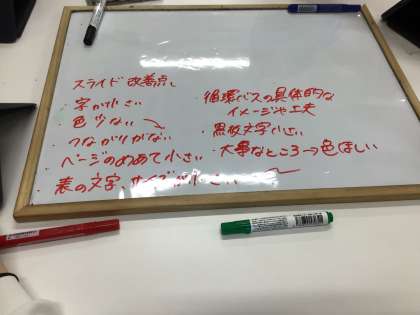 スライド 改善点
・字が小さい
・色少ない
・つながりがない
・ページのめあて小さい
・表の文字、サイズが小さい
・循環バスの具体的な
イメージや工夫
・黒板文字小さい
・大事なところ→色ほしい